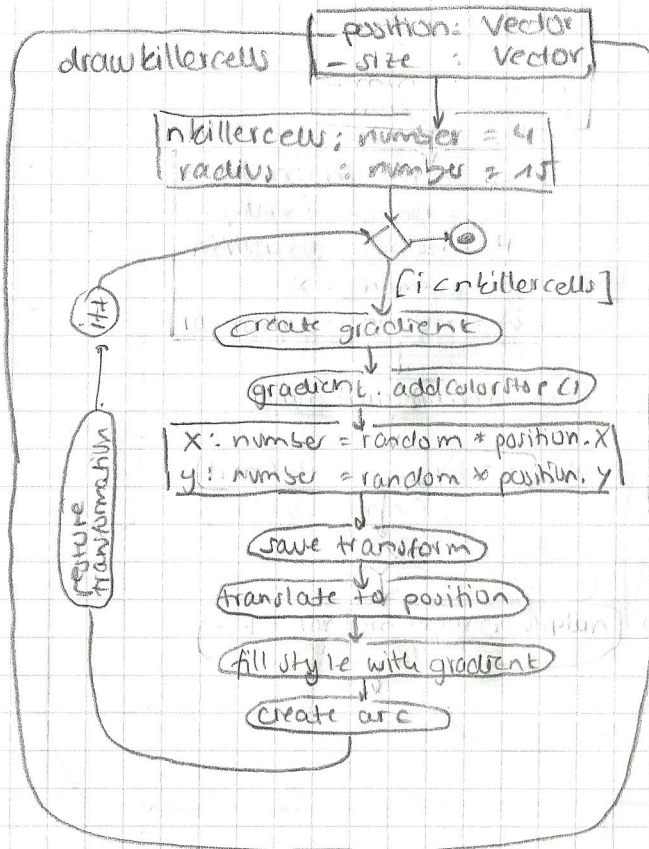 drawkillercells
- position: Vector
- size : Vector
nkillercells: number = 4
radius : number = 15
[i < nkillercells]
create gradient
gradient.addColorStop()
x: number = random * position.x
y: number = random * position.y
save transform
translate to position
fill style with gradient
create arc
restore
transformation
i++